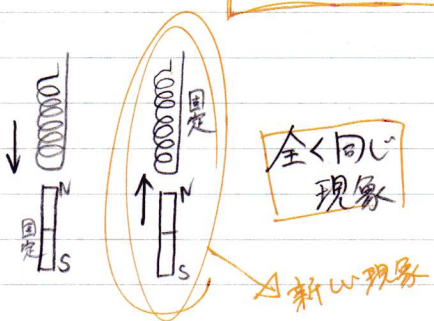 固定
N
S
固定
N
S
全く同じ
現象
新しい現象